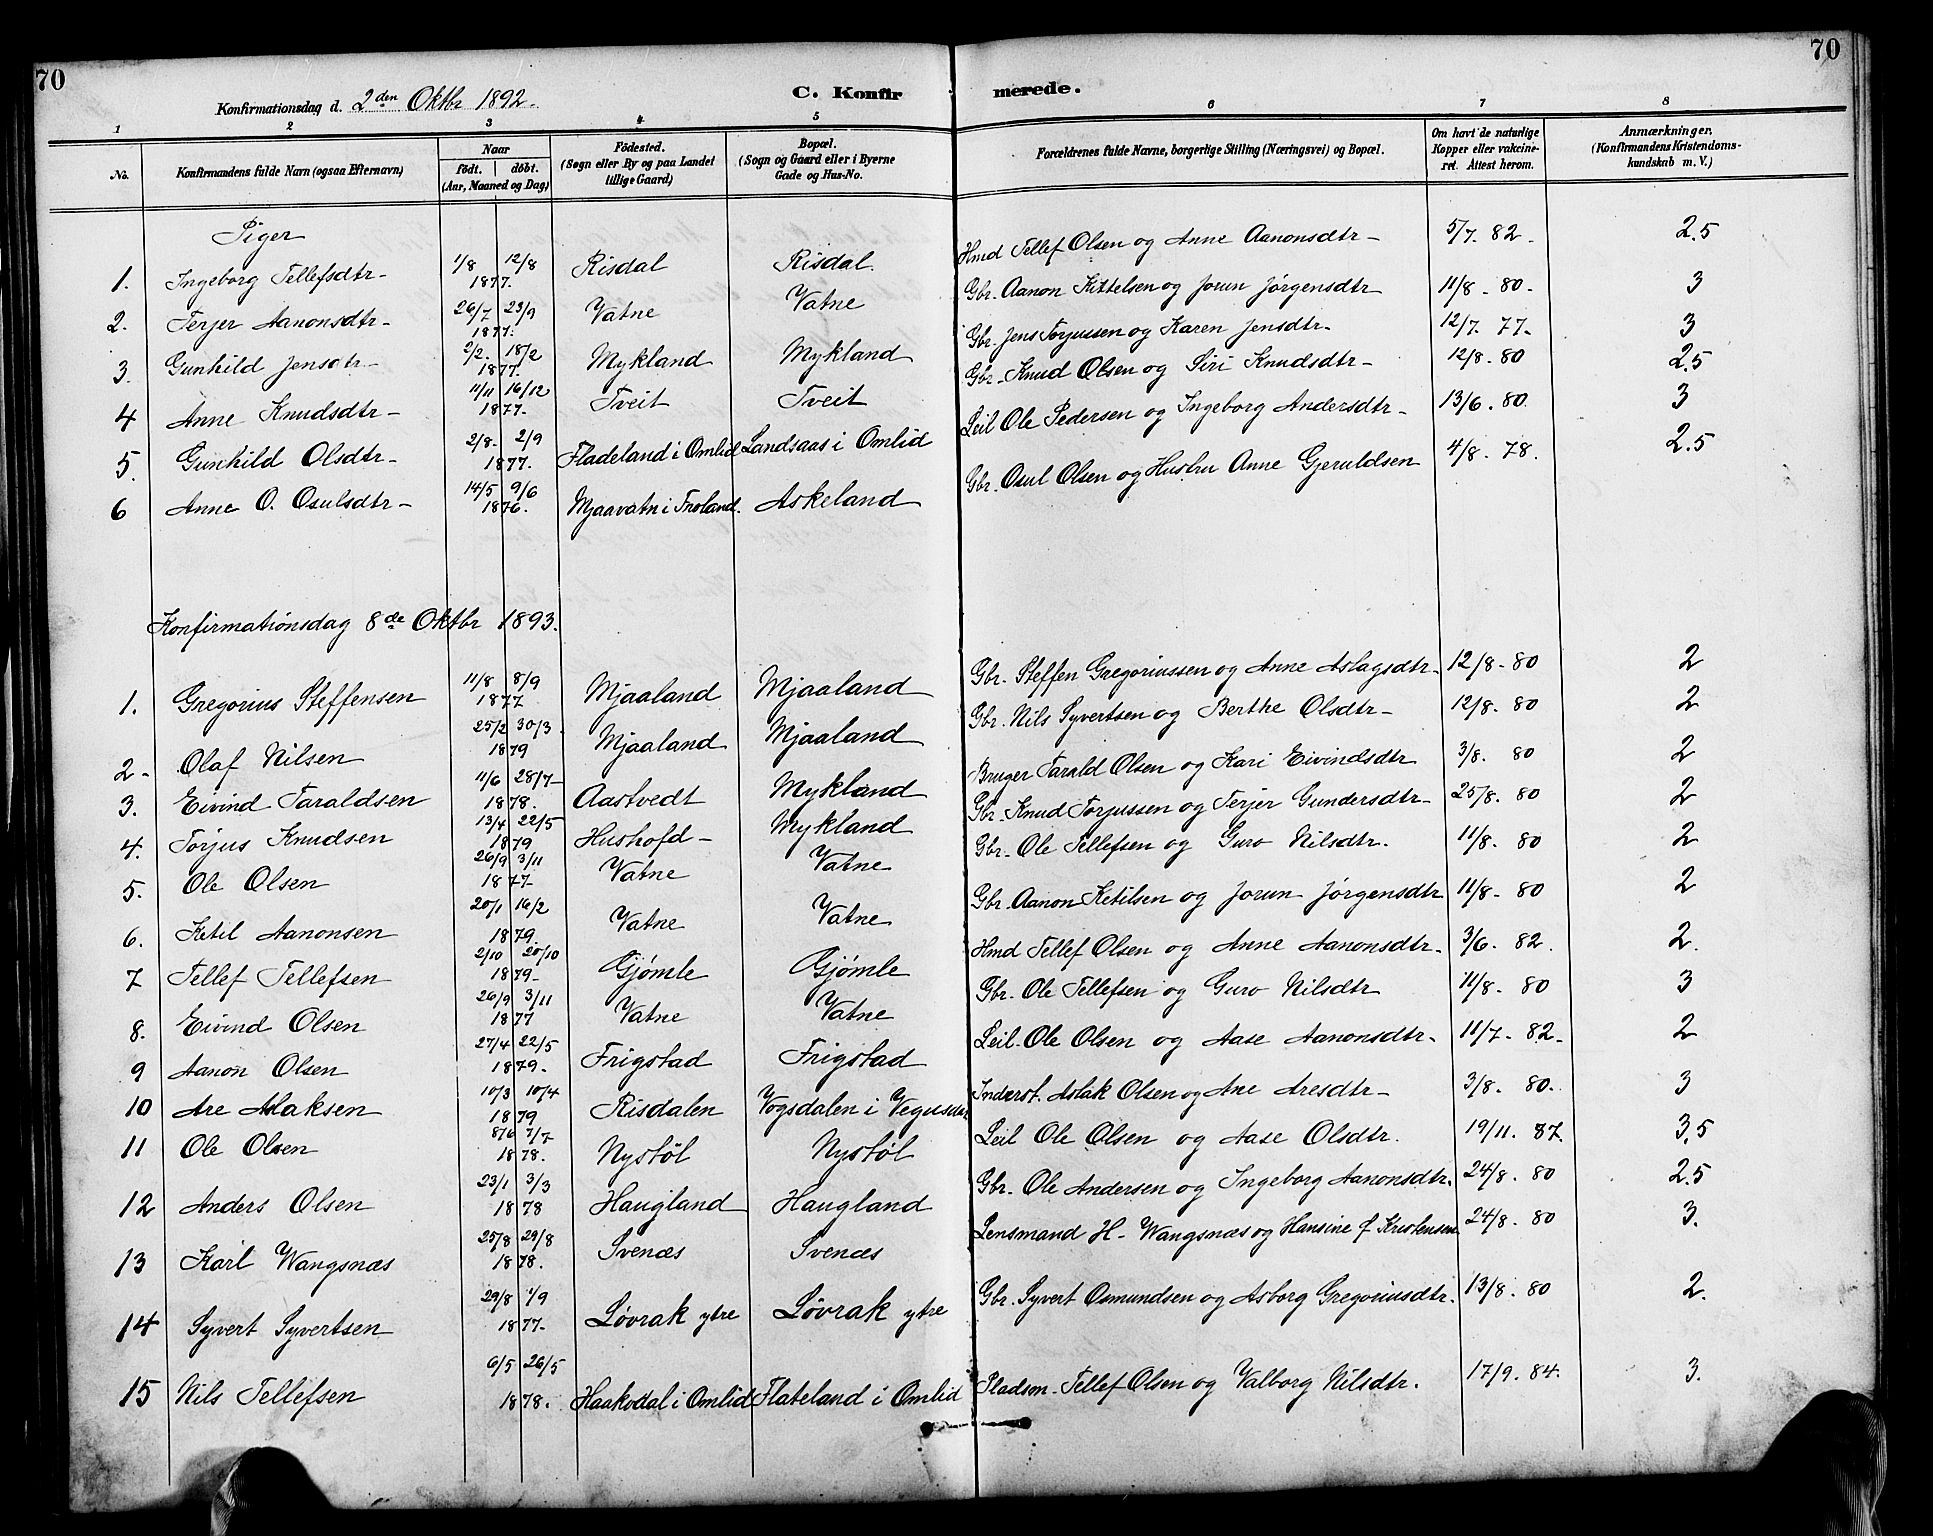 70
70
Konfirmationsdag d. 2den Oktbr 1892.
C. Konfirmerede.
1 2 3 4 5 6 7 8
No. | Konfirmandens fulde Navn (ogsaa Efternavn) | Naar født. | døbt. (Aar, Maaned og Dag) | Fødested. (Sogn eller By og paa Landet tillige Gaard) | Bopæl. (Sogn og Gaard eller i Byerne Gade og Hus-No. | Forældrenes fulde Navne, borgerlige Stilling (Næringsvei) og Bopæl. | Om havt de naturlige Kopper eller vaccineret. Attest herom. | Anmærkninger. (Konfirmandens Kristendomskundskab m. V.)
Piger
1. Ingeborg Tellefsdtr- 1/8 12/8 1877. Risdal Risdal. Hmd Tellef Olsen og Anne Aanonsdtr- 5/7. 82. 2.5
2. Terjer Aanonsdtr- 26/7 23/9 1877. Vatne Vatne Gbr. Aanon Kittelsen og Jorun Jørgensdtr 11/8 - 80 - 3
3. Gunhild Jensdtr- 2/2. 18/2 1877. Mykland Mykland Gbr. Jens Torjussen og Karen Jensdtr. 12/7. 77. 3
4 Anne Knudsdtr- 11/11 16/12 1877. Tveit Tveit Gbr. Knud Olsen og Siri Knudsdtr- 12/8. 80 2.5
5. Gunhild Olsdtr- 2/8. 2/9 1877. Fladeland i Omlid Landsaas i Omlid Leil Ole Pedersen og Ingeborg Andersdtr- 13/6. 80. 3
6 Anne O. Osulsdtr- 14/5 9/6 1876. Mjaavatn i Froland. Askeland Gbr. Osul Olsen og Hustru Anne Gjeruldsen 4/8. 78. 2.5
Konfirmationsdag 8de Oktbr 1893.
1. Gregorius Steffensen 11/8 8/9 1877 Mjaaland Mjaaland Gbr. Steffen Gregoriussen og Anne Aslagsdtr- 12/8 - 80 2
2- Olaf Nilsen 25/2 30/3. 1879 Mjaaland Mjaaland Gbr. Nils Syvertsen og Berthe Olsdtr- 12/8. 80 2
3. Eivind Taraldsen 11/6 28/7 1878. Aastvedt Mykland Bruger Tarald Olsen og Kari Eivindsdtr 3/8. 80 2
4. Torjus Knudsen 13/4 22/5 1879 Hushofd- Mykland Gbr. Knud Torjussen og Terjer Gundersdtr- 25/8. 80 2
5. Ole Olsen 26/9 3/11 1877- Vatne Vatne Gbr. Ole Tellefsen og Guro Nilsdtr. 11/8. 80 2
6. Ketil Aanonsen 20/1 16/2 1879. Vatne Vatne Gbr. Aanon Ketilsen og Jorun Jørgensdtr 11/8- 80 2
7 Tellef Tellefsen 2/10 20/10 1879- Gjømle Gjømle Hmd Tellef Olsen og Anne Aanonsdtr. 3/6. 82. 2.
8. Eivind Olsen 26/9 3/11 1877 Vatne Vatne Gbr. Ole Tellefsen og Guro Nilsdtr 11/8- 80 3
9 Aanon Olsen 27/4 22/5 1879. Frigstad Frigstad Leil. Ole Olsen og Aase Aanonsdtr. 11/7. 82. 2
10 Are Aslaksen 10/3 10/4 1879 Risdalen Vogsdalen i Inderst. Aslak Olsen og Ane Aresdtr- 3/8. 80. 3
11 Ole Olsen 8/6 7/7 1878. Nystøl Nystøl Leil Ole Olsen og Aase Olsdtr. 19/11. 87. 3.5
12 Anders Olsen 23/1 3/3 1878 Haugland Haugland Gbr. Ole Andersen og Ingeborg Aanonsdtr. 24/8. 80 2.5
13 Karl Wangsnæs 25/8 29/8 1878. Svenæs Svenæs Lensmand H- Wangsnæs og Hansine f Kristensen 24/8. 80 3.
14 Syvert Syvertsen 29/8 1/9 1877- Løvrak ytre Løvrak ytre Gbr. Syvert Osmundsen og Asborg Gregoriusdtr. 13/8. 80 2.
15 Nils Tellefsen 6/5 26/5 1878. Haakvdal i Omlid Flateland i Omlid Pladsm. Tellef Olsen og Valborg Nilsdtr. 17/9. 84. 3.